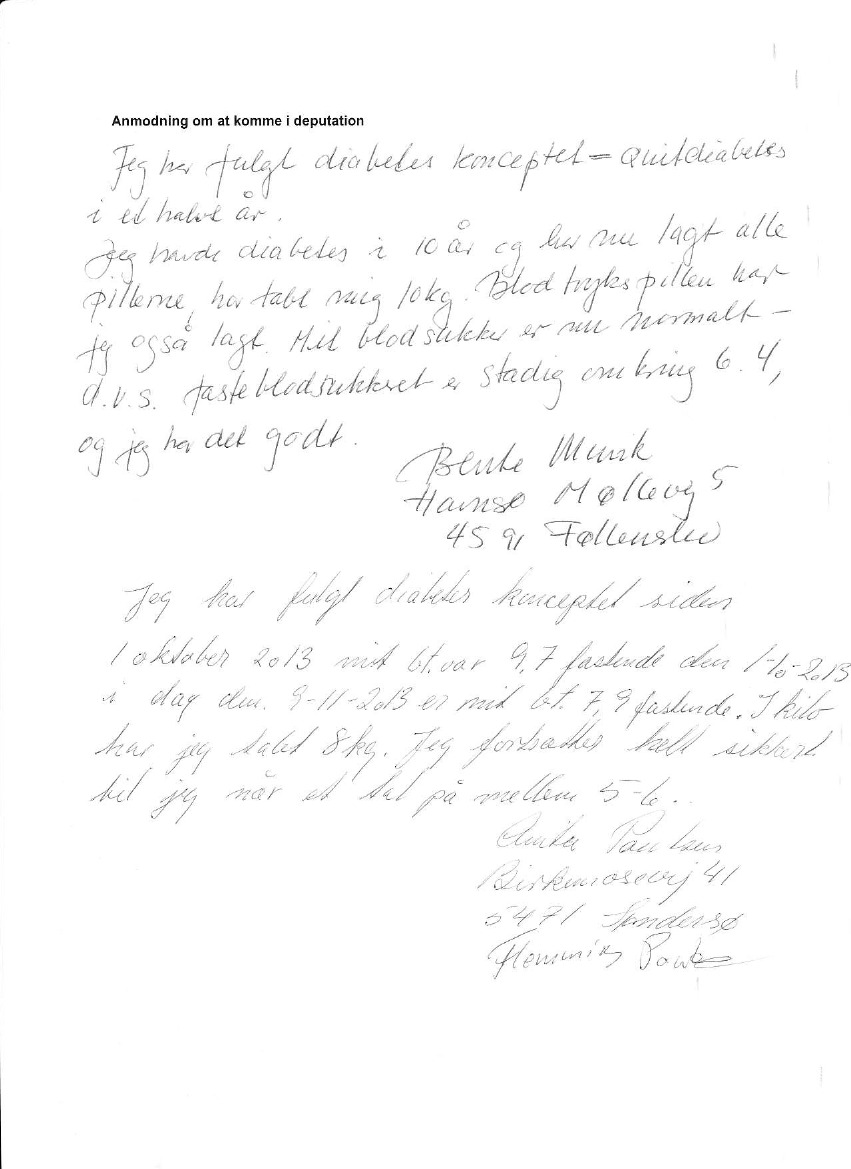 Anmodning om at komme i deputation
Jeg har fulgt diabetes konceptet = Quitdiabetes
i et halvt år.
Jeg havde diabetes i 10 år og har nu lagt alle
pillerne, har tabt mig 10kg. Blodtrykspillen har
jeg også lagt. Mit blodsukker er nu normalt –
d.v.s. fasteblodsukkeret er stadig omkring 6.4,
og jeg har det godt.
Bente Munk
Havnsø Møllevej 5
4591 Føllenslev
Jeg har fulgt diabetes konceptet siden
1 oktober 2013 mit bt. var 9,7 fastende den 1-10-2013
i dag den. 9-11-2013 er mit bt. 7,9 fastende. I kilo
har jeg tabt 8kg. Jeg fortsætter helt sikkert
til jeg når et tal på mellem 5-6..
Anita
Birkemosevej 41
5471 Søndersø
Flemming